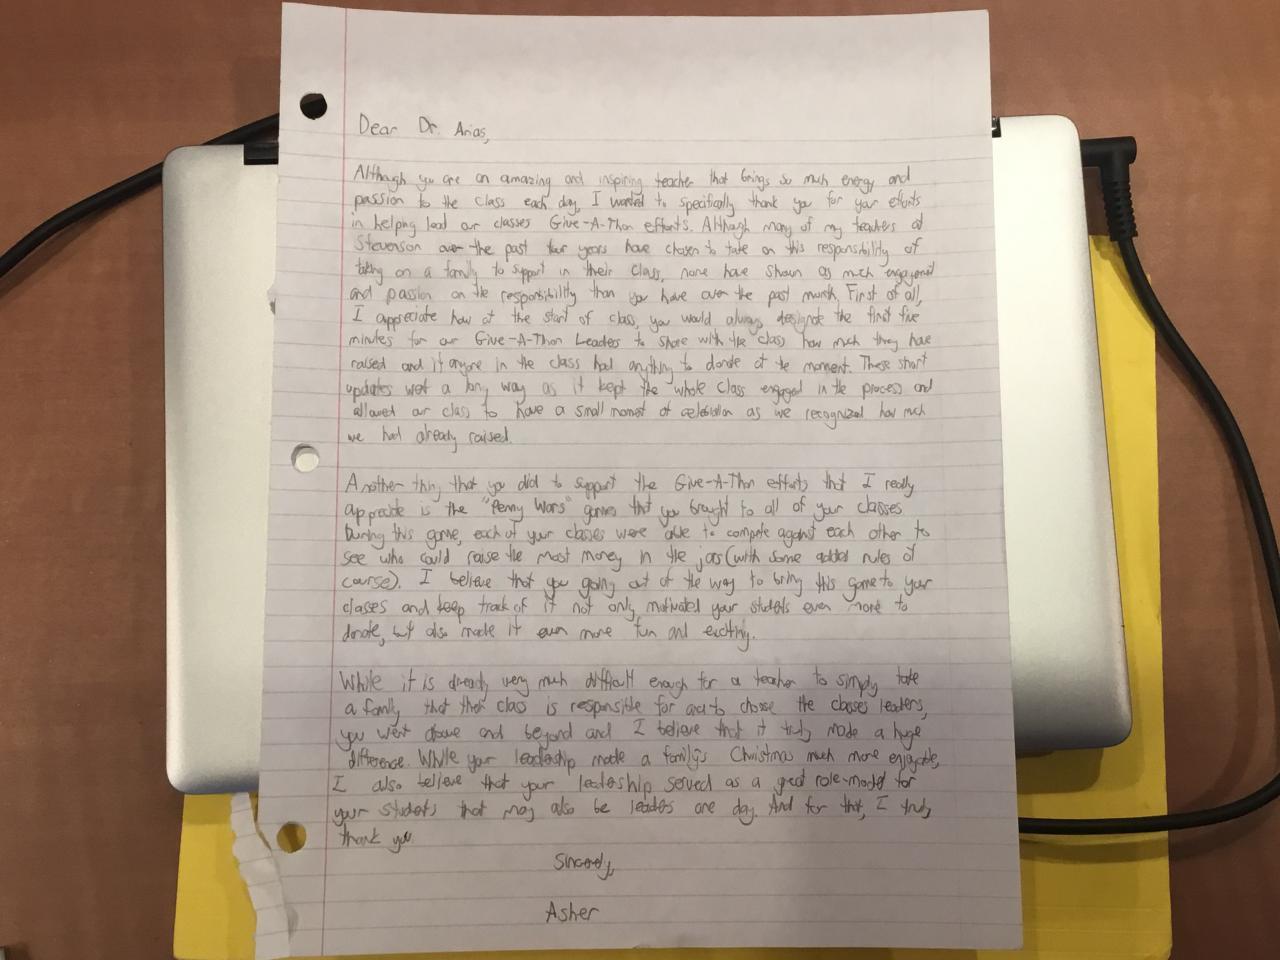 Dear Dr. Arias,
Although you are an amazing and inspiring teacher that brings so much energy and
passion to the class each day, I wanted to specifically thank you for your efforts
in helping lead our classes Give-A-Thon efforts. Although many of my teachers at
Stevenson over the past four years have chosen to take on this responsibility of
taking on a family to support in their class, none have shown as much engagement
and passion on the responsibility than you have over the past month. First of all,
I appreciate how at the start of class, you would always designate the first five
minutes for our Give-A-Thon Leaders to share with the class how much they have
raised and if anyone in the class had anything to donate at the moment. These short
updates went a long way as it kept the whole class engaged in the process and
allowed our class to have a small moment of celebration as we recognized how much
we had already raised.
Another thing that you did to support the Give-A-Thon efforts that I really
appreciate is the "Penny Wars" games that you brought to all of your classes
During this game, each of your classes were able to compete against each other to
see who could raise the most money in the jars (with some added rules of
course). I believe that you going out of the way to bring this game to your
classes and keep track of it not only motivated your students even more to
donate, but also made it even more fun and exciting.
While it is already very much difficult enough for a teacher to simply take
a family that their class is responsible for and to choose the classes leaders,
you went above and beyond and I believe that it truly made a huge
difference. While your leadership made a family's Christmas much more enjoyable,
I also believe that your leadership served as a great role-model for
your students that may also be leaders one day. And for that, I truly
thank you.
Sincerely,
Asher